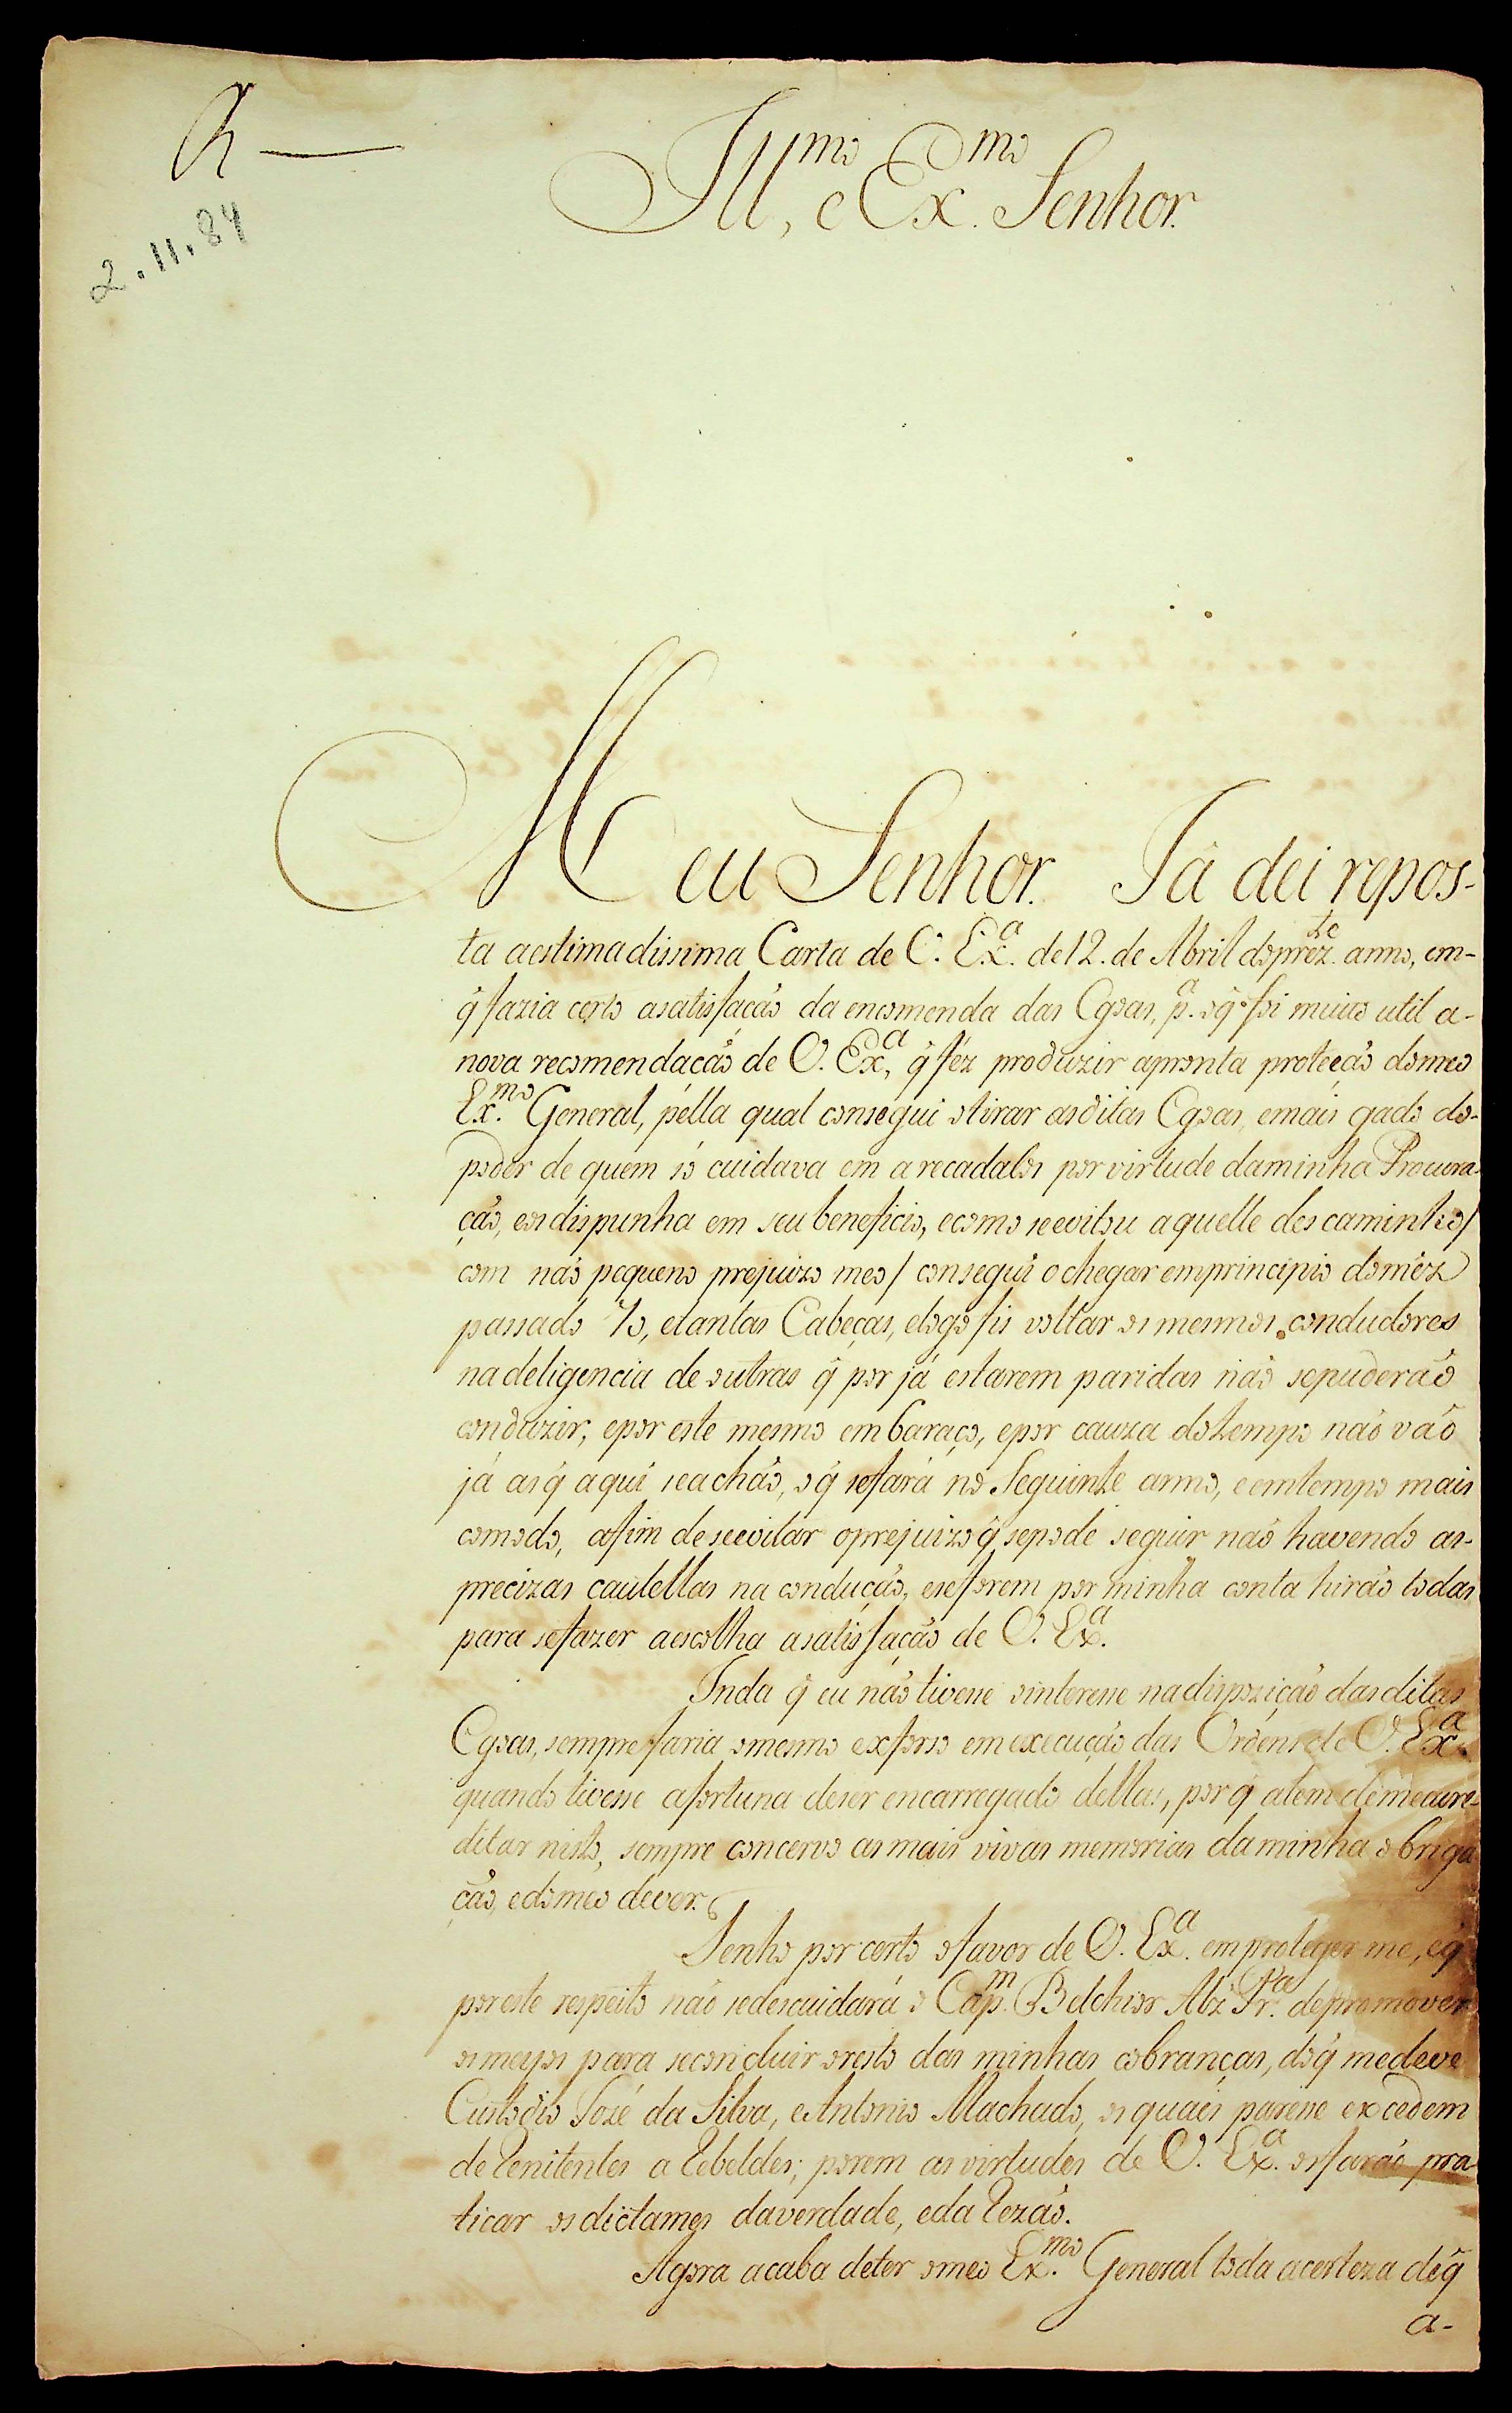 R —
2.11.84
Ill.mo, e Ex.mo Senhor.
Meu Senhor. Já dei repos-
ta aestimadissima Carta de V. Ex.a de 12. de Abril doprez.te anno, em-
q̃ fazia certo asatisfacão da encomenda das Egoas, p.a oq̃ foi muito util a-
nova recomendacão de V. Ex.a, q̃ féz produzir apronta protecão domeo
Ex.mo General, pélla qual consegui otirar asditas Egoas, emais gado do-
poder de quem só cuidava em arecadalos por virtude daminha Procura-
ção, eosdispunha em seu beneficio, ecomo seevitou aquelle descaminho/
com não pequeno prejuizo meo/ consegui o chegar emprincipio doméz
passado 70, etantas Cabeças, elogo fis voltar osmesmos condudores
na deligencia de outras q̃ por já estarem paridas não sepuderão
conduzir; epor este mesmo embaraço, epor cauza dotempo não vão
já asq̃ aqui seachão, oq̃ sefará no Seguinte anno, eemtempo mais
comodo, afim deseevitar oprejuizo q̃ sepode seguir não havendo as-
precizas cautellas na condução, eseforem por minha conta hirão todas
para sefazer aescolha asatisfação de V. Ex.a
Inda q̃ eu não tivese ointerese nadispozição dasditas
Egoas, sempre faria omesmo exforso emexecução das Ordens de V. Ex.a
quando tivesse afortuna deser encarregado dellas, porq̃ alem demeacre-
ditar nisto, sempre concervo as mais vivas memorias daminha obriga
ção, edomeo dever.
Tenho por certo ofavor de V. Ex.a emproteger me, eq̃
poreste respeito não sedescuidará o Cap.m Belchior Alz' Fr.a depromover
osmeyos para seconcluir oresto das minhas cobranças, doq̃ medeve
Custodio José da Silva, eAntonio Machado, os quaes parese excedem
de Renitentes a Rebeldes; porem asvirtudes de V. Ex.a osfarão pra
ticar osdictames daverdade, eda Rezão.
Agora acaba deter omeo Ex.mo General toda acerteza deq̃
a-